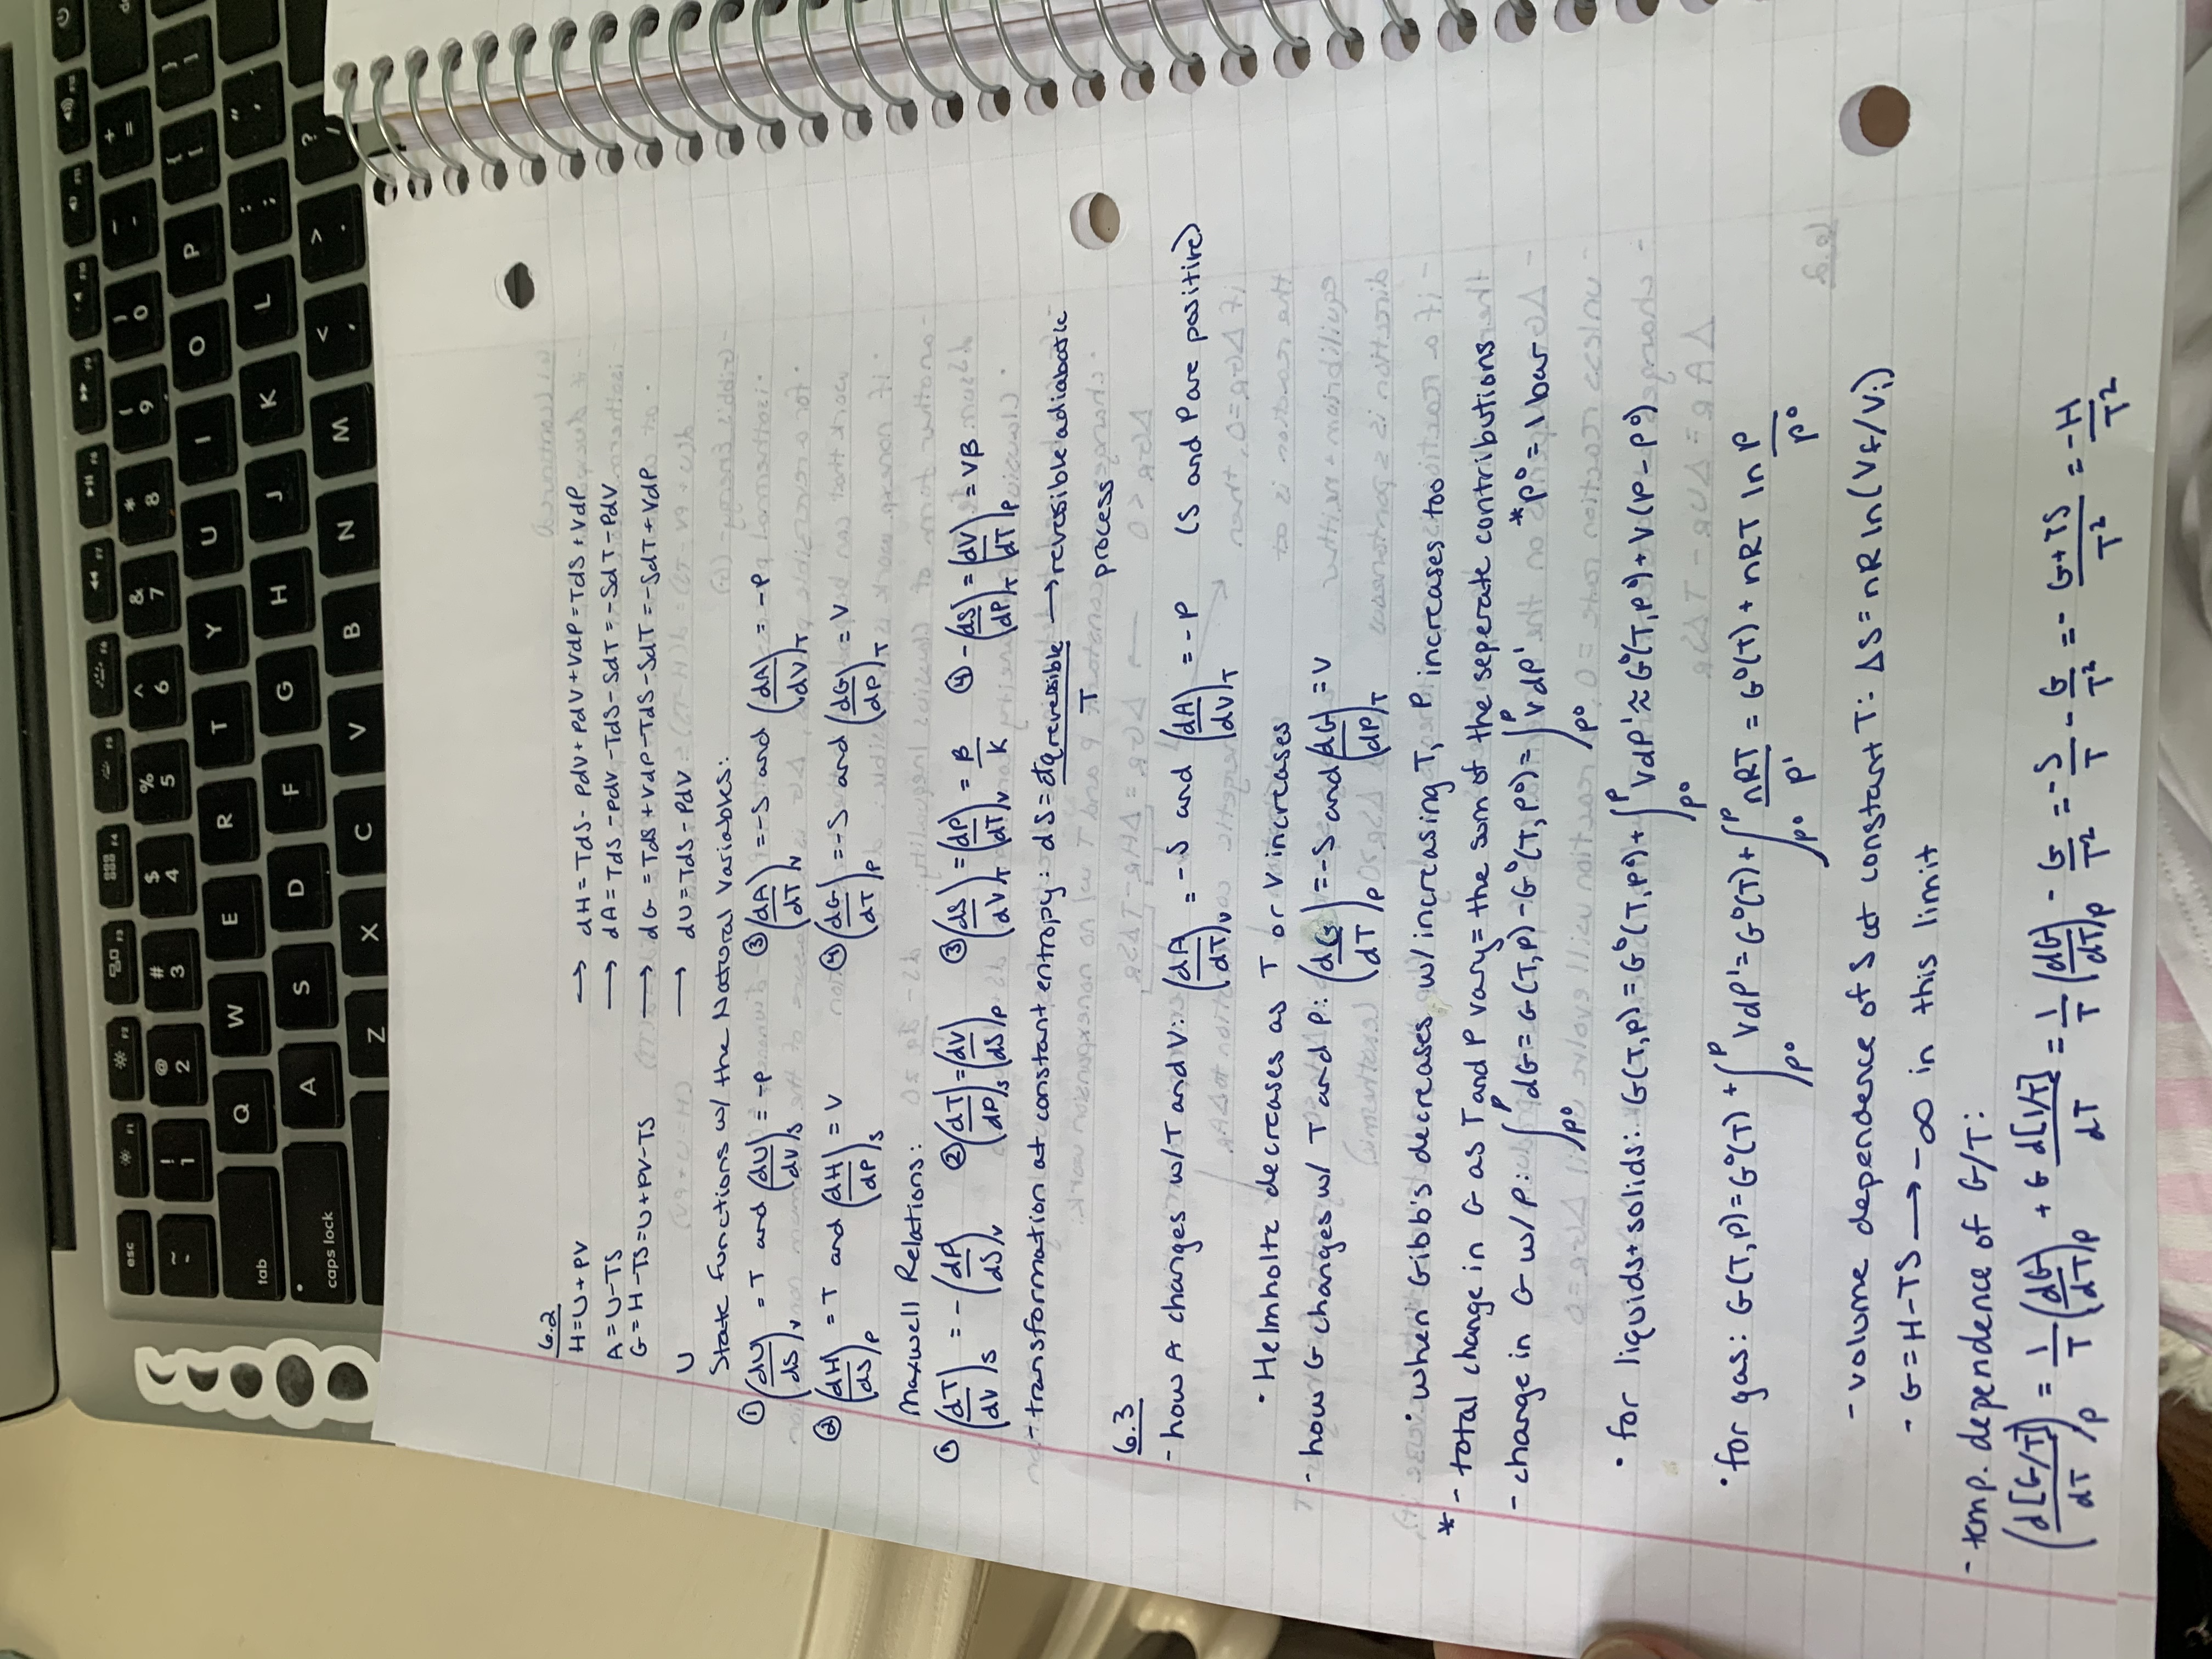 esc F1 F2 F3 F4 F5 F6 F7 F8 F9 F10 F11 F12
~ ` ! 1 @ 2 # 3 $ 4 % 5 ^ 6 & 7 * 8 ( 9 ) 0 - + =
tab Q W E R T Y U I O P { [ } ]
caps lock A S D F G H J K L : ; " '
Z X C V B N M < , > . ? /
6.2
H=U+PV → dH = TdS - PdV + PdV + VdP = TdS + VdP
A = U-TS → dA = TdS - PdV - TdS - SdT = -SdT - PdV
G = H-TS = U+PV-TS → dG = TdS + VdP - TdS - SdT = -SdT + VdP
U → dU = TdS - PdV
State functions w/ the Natural Variables:
① (dU/dS)_V = T and (dU/dV)_S = -P ③ (dA/dT)_V = -S and (dA/dV)_T = -P
② (dH/dS)_P = T and (dH/dP)_S = V ④ (dG/dT)_P = -S and (dG/dP)_T = V
Maxwell Relations:
① (dT/dV)_S = -(dP/dS)_V ② (dT/dP)_S = (dV/dS)_P ③ (dS/dV)_T = (dP/dT)_V = β/K ④ -(dS/dP)_T = (dV/dT)_P = Vβ
- transformation at constant entropy: dS = đq reversible/T → reversible adiabatic
process
6.3
- how A changes w/ T and V: (dA/dT)_V = -S and (dA/dV)_T = -P (S and P are positive)
• Helmholtz decreases as T or V increases
- how G changes w/ T and P: (dG/dT)_P = -S and (dG/dP)_T = V
• when Gibb's decreases w/ increasing T, P increases too
* - total change in G as T and P vary = the sum of the seperate contributions
- change in G w/ P: ∫_{P°}^{P} dG = G(T,P) - G°(T,P°) = ∫_{P°}^{P} VdP' *P° = 1 bar
• for liquids + solids: G(T,P) = G°(T,P°) + ∫_{P°}^{P} VdP' ≈ G°(T,P°) + V(P - P°)
• for gas: G(T,P) = G°(T) + ∫_{P°}^{P} VdP' = G°(T) + ∫_{P°}^{P} nRT/P' = G°(T) + nRT ln P/P°
- volume dependence of S at constant T: ΔS = nR ln(Vf/Vi)
- G = H-TS → -∞ in this limit
- temp. dependence of G/T:
(d[G/T]/dT)_P = 1/T (dG/dT)_P + G d[1/T]/dT = 1/T (dG/dT)_P - G/T² = -S/T - G/T² = - G+TS/T² = -H/T²